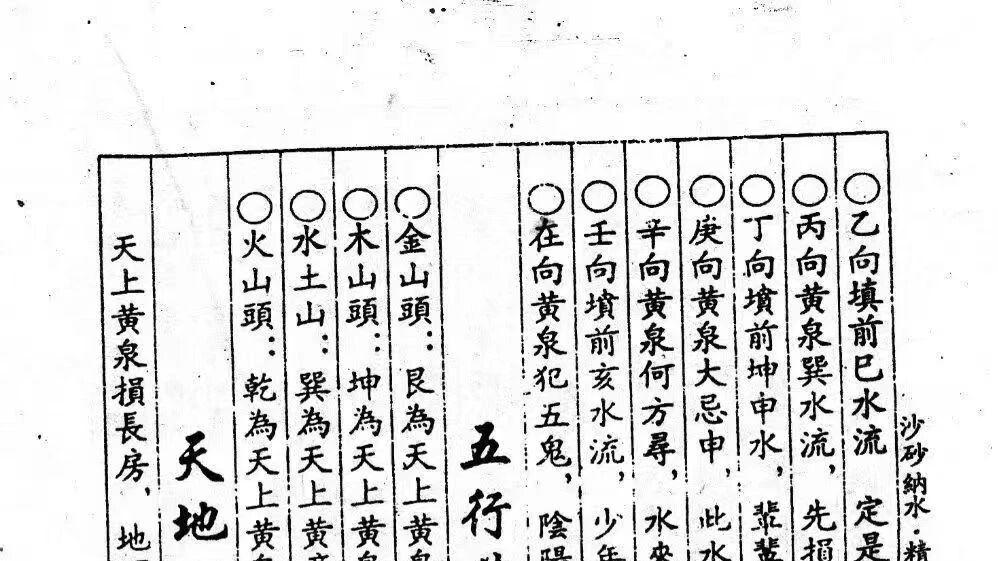 沙砂納水·精
○乙向填前巳水流 定是
○丙向黃泉巽水流，先損
○丁向墳前坤申水，輩輩
○庚向黃泉大忌申，此水
○辛向黃泉何方尋，水來
○壬向墳前亥水流，少年
○在向黃泉犯五鬼，陰陽
五行
○金山頭：艮為天上黃泉
○木山頭：坤為天上黃泉
○水土山：巽為天上黃
○火山頭：乾為天上黃泉
天地
天上黃泉損長房，地